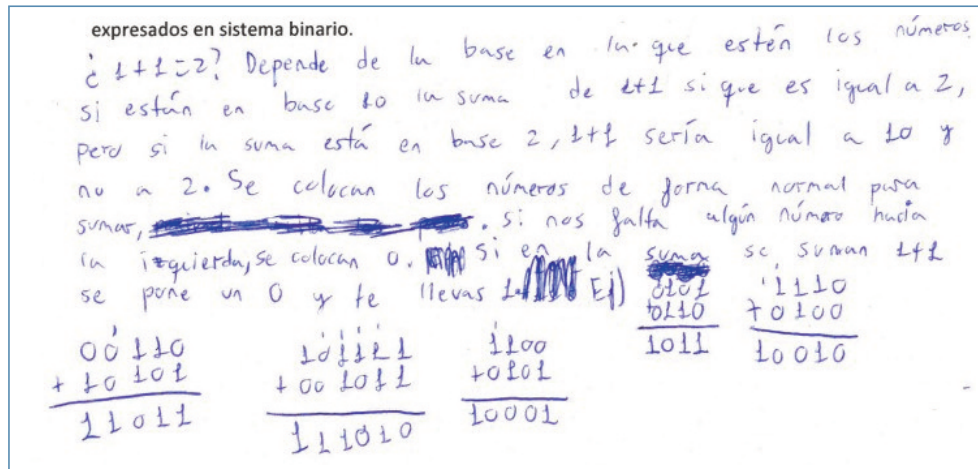 expresados en sistema binario.
¿1+1=2? Depende de la base en la que estén los números.
si están en base 10 la suma de 1+1 si que es igual a 2,
pero si la suma está en base 2, 1+1 sería igual a 10 y
no a 2. Se colocan los números de forma normal para
sumar, . si nos falta algún número hacia
la izquierda, se colocan 0. si en la suma se suman 1+1
se pone un 0 y te llevas 1 Ej)
0101
+0110
1011
1110
+0100
10010
00110
+10101
11011
101111
+001011
111010
1100
+0101
10001